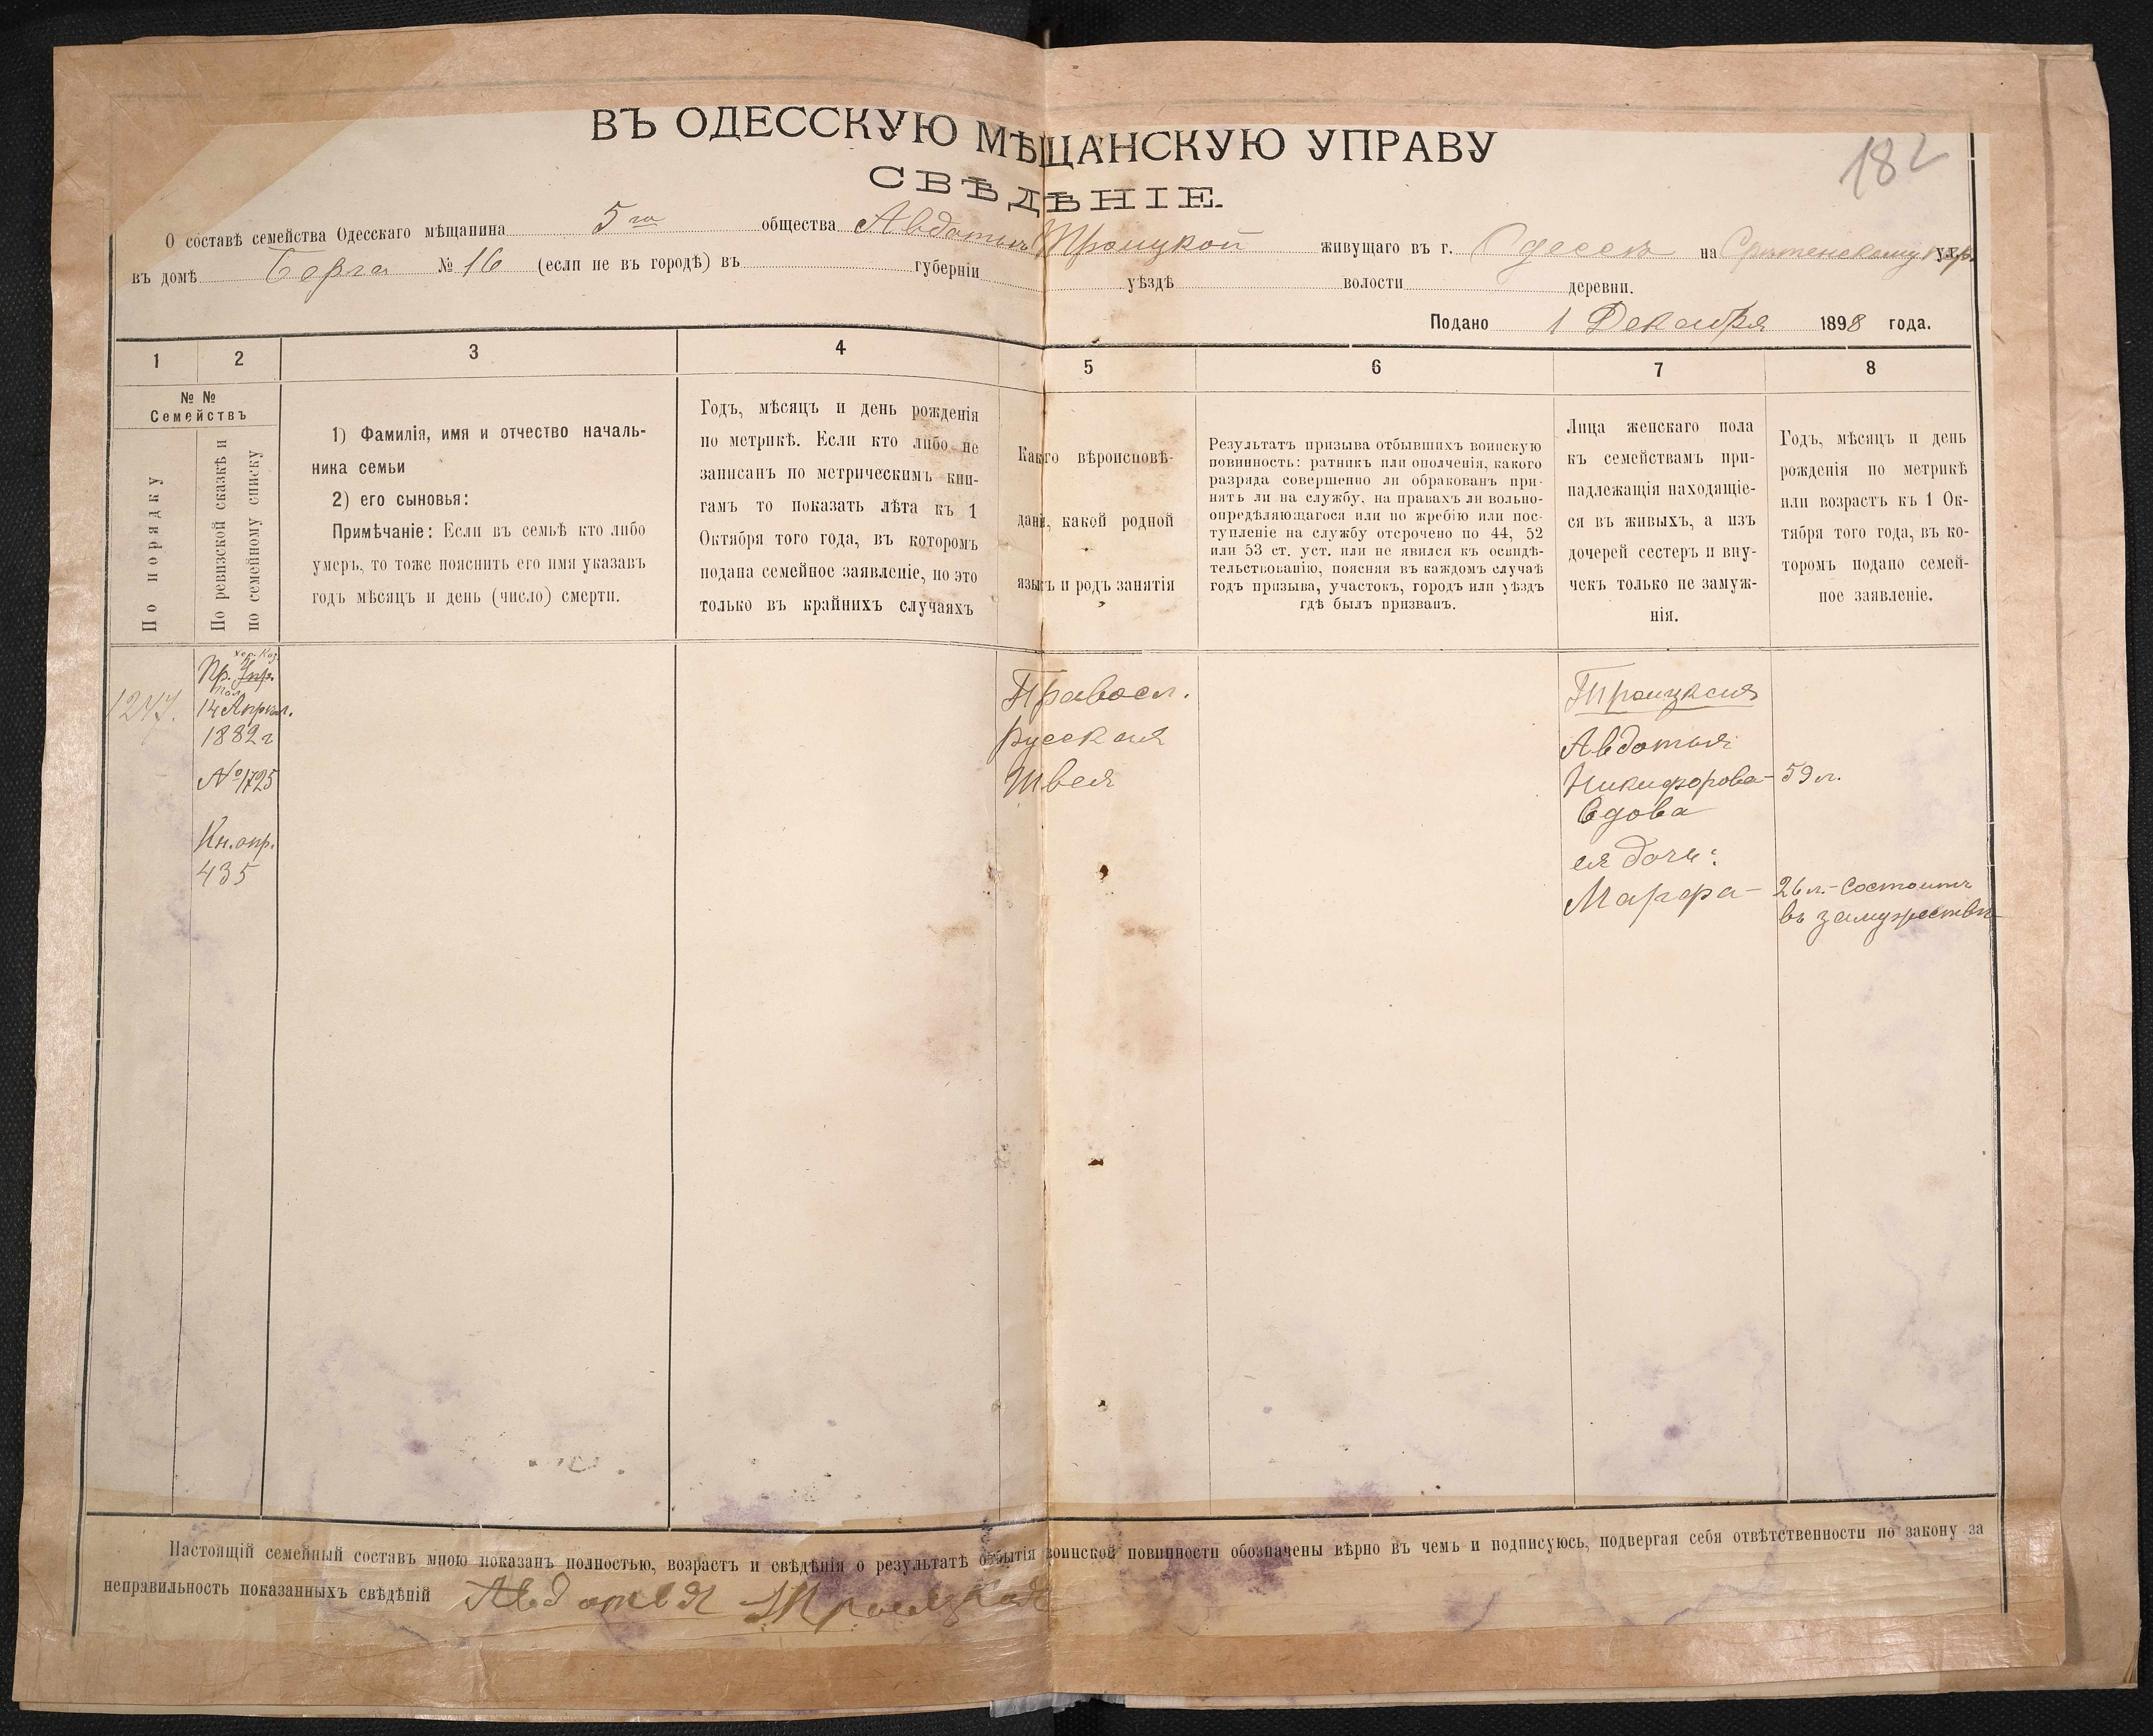 ВЪ ОДЕССКУЮ МѢЩАНСКУЮ УПРАВУ
182
СВѢДѢНІЕ.
О составѣ семейства Одесскаго мѣщанина 5го общества Авдотьи Троицкой живущаго въ г. Одессѣ на Срѣтенскому пер. ул.
въ домѣ Берга № 16 (если не въ городѣ) въ губерніи уѣздѣ волости деревни.
Подано 1 Декабря 1898 года.
1 2 3 4 5 6 7 8
№ №
Семействъ
По порядку
По ревизской сказкѣ и
по семейному списку
1) Фамилія, имя и отчество началь-
ника семьи
2) его сыновья:
Примѣчаніе: Если въ семьѣ кто либо
умеръ, то тоже пояснить его имя указавъ
годъ мѣсяцъ и день (число) смерти.
Годъ, мѣсяцъ и день рожденія
по метрикѣ. Если кто либо не
записанъ по метрическимъ кни-
гамъ то показать лѣта къ 1
Октября того года, въ которомъ
подана семейное заявленіе, но это
только въ крайнихъ случаяхъ
Какого вѣроисповѣ-
данія, какой родной
языкъ и родъ занятія
Результатъ призыва отбывшихъ воинскую
повинность: ратникъ или ополченія, какого
разряда совершенно ли обракованъ при-
нятъ ли на службу, на правахъ ли вольно-
опредѣляющагося или по жребію или пос-
тупленіе на службу отсрочено по 44, 52
или 53 ст. уст. или не явился къ освидѣ-
тельствованію, поясняя въ каждомъ случаѣ
годъ призыва, участокъ, городъ или уѣздъ
гдѣ былъ призванъ.
Лица женскаго пола
къ семействамъ при-
надлежащія находящіе-
ся въ живыхъ, а изъ
дочерей сестеръ и вну-
чекъ только не замуж-
нія.
Годъ, мѣсяцъ и день
рожденія по метрикѣ
или возрастъ къ 1 Ок-
тября того года, въ ко-
торомъ подано семей-
ное заявленіе.
1247.
хер. Каз.
Пр. Упр.
пол.
14 Апрѣл.
1882 г
№ 1725
Кн. опр.
435
Правосл.
русская
Швея
Троицкая
Авдотья
Никифорова - 59 л.
Вдова
ея дочь:
Марфа - 26 л. - состоитъ
въ замужествѣ
Настоящій семейный составъ мною показанъ полностью, возрастъ и свѣдѣнія о результатѣ отбытія воинской повинности обозначены вѣрно въ чемъ и подписуюсь, подвергая себя отвѣтственности по закону за
неправильность показанныхъ свѣдѣній Авдотья Троицкая